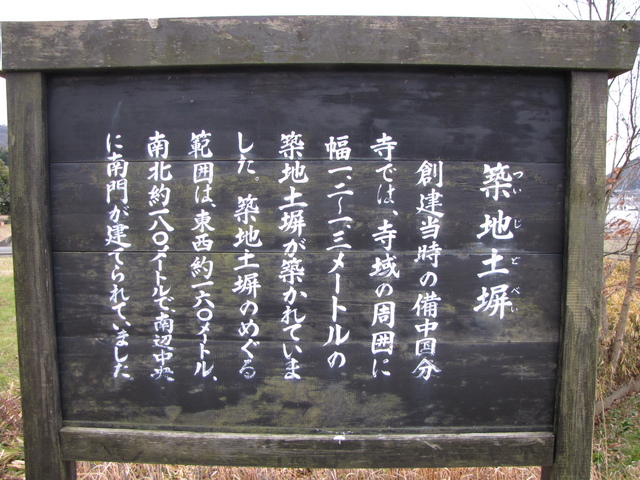 築地土塀
ついじどべい
創建当時の備中国分
寺では、寺域の周囲に
幅一.二~一.三メートルの
築地土塀が築かれていま
した。築地土塀のめぐる
範囲は、東西約一六〇メートル、
南北約一八〇メートルで、南辺中央
に南門が建てられていました